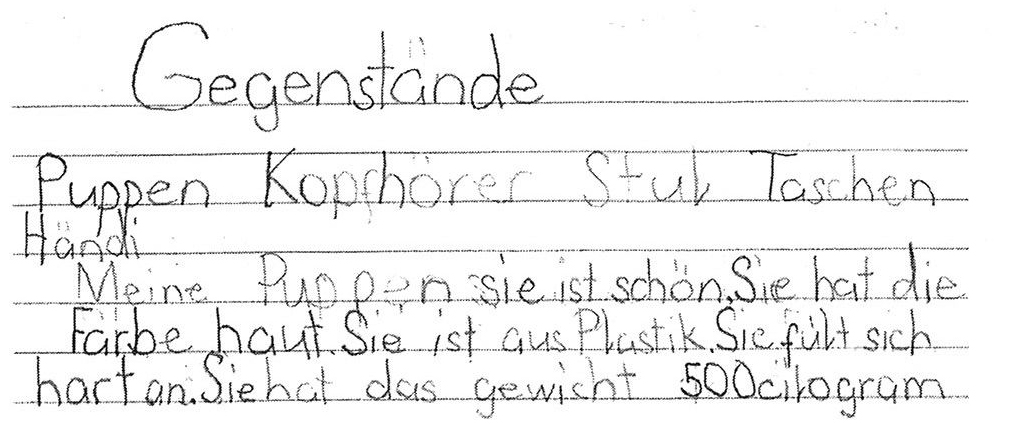 Gegenstände
Puppen Kopfhörer Stul Taschen
Händi
Meine Puppen sie ist schön. Sie hat die
Farbe haut. Sie ist aus Plastik. Sie fült sich
hart an. Sie hat das gewicht 500 cilogram